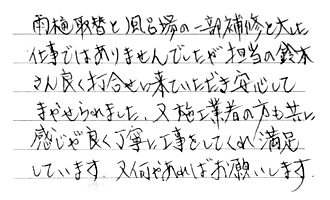 雨樋取替と風呂場の一部補修と大した
仕事ではありませんでしたが担当の鈴木
さん良く打合せに来ていただき安心して
まかせられました。又施工業者の方も共に
感じが良く丁寧に工事をしてくれ満足
しています。又何かあればお願いします。